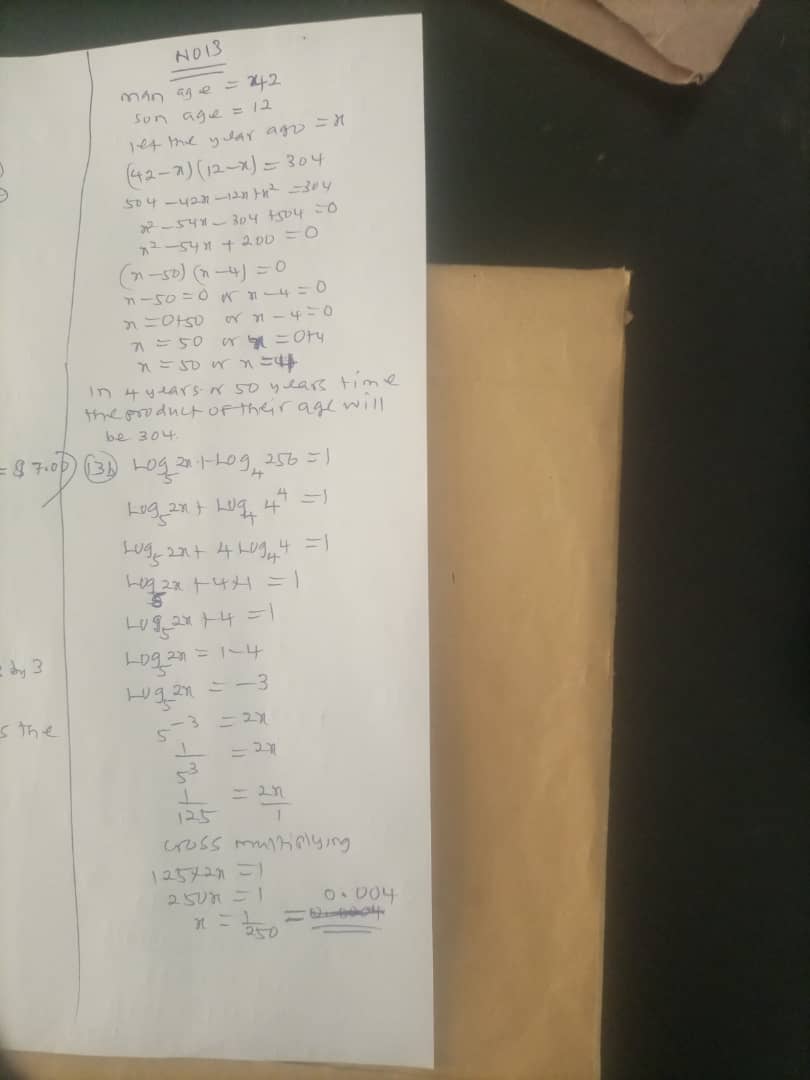 NO13
man age = 42
son age = 12
let the year ago = x
(42-x)(12-x) = 304
504 -42x -12x + x² = 304
x² - 54x - 304 + 504 = 0
x² - 54x + 200 = 0
(x-50)(x-4) = 0
x-50 = 0 or x-4 = 0
x = 0+50 or x-4 = 0
x = 50 or x = 0+4
x = 50 or x = 4
In 4 years or 50 years time
the product of their age will
be 304.
= $7.00
(13b) Log₅2x + Log₄256 = 1
Log₅2x + Log₄4⁴ = 1
Log₅2x + 4Log₄4 = 1
Log₅2x + 4×1 = 1
Log₅2x + 4 = 1
Log₅2x = 1-4
by 3
Log₅2x = -3
s the
5⁻³ = 2x
1/5³ = 2x
1/125 = 2x/1
cross multiplying
125×2x = 1
250x = 1
x = 1/250 = 0.004